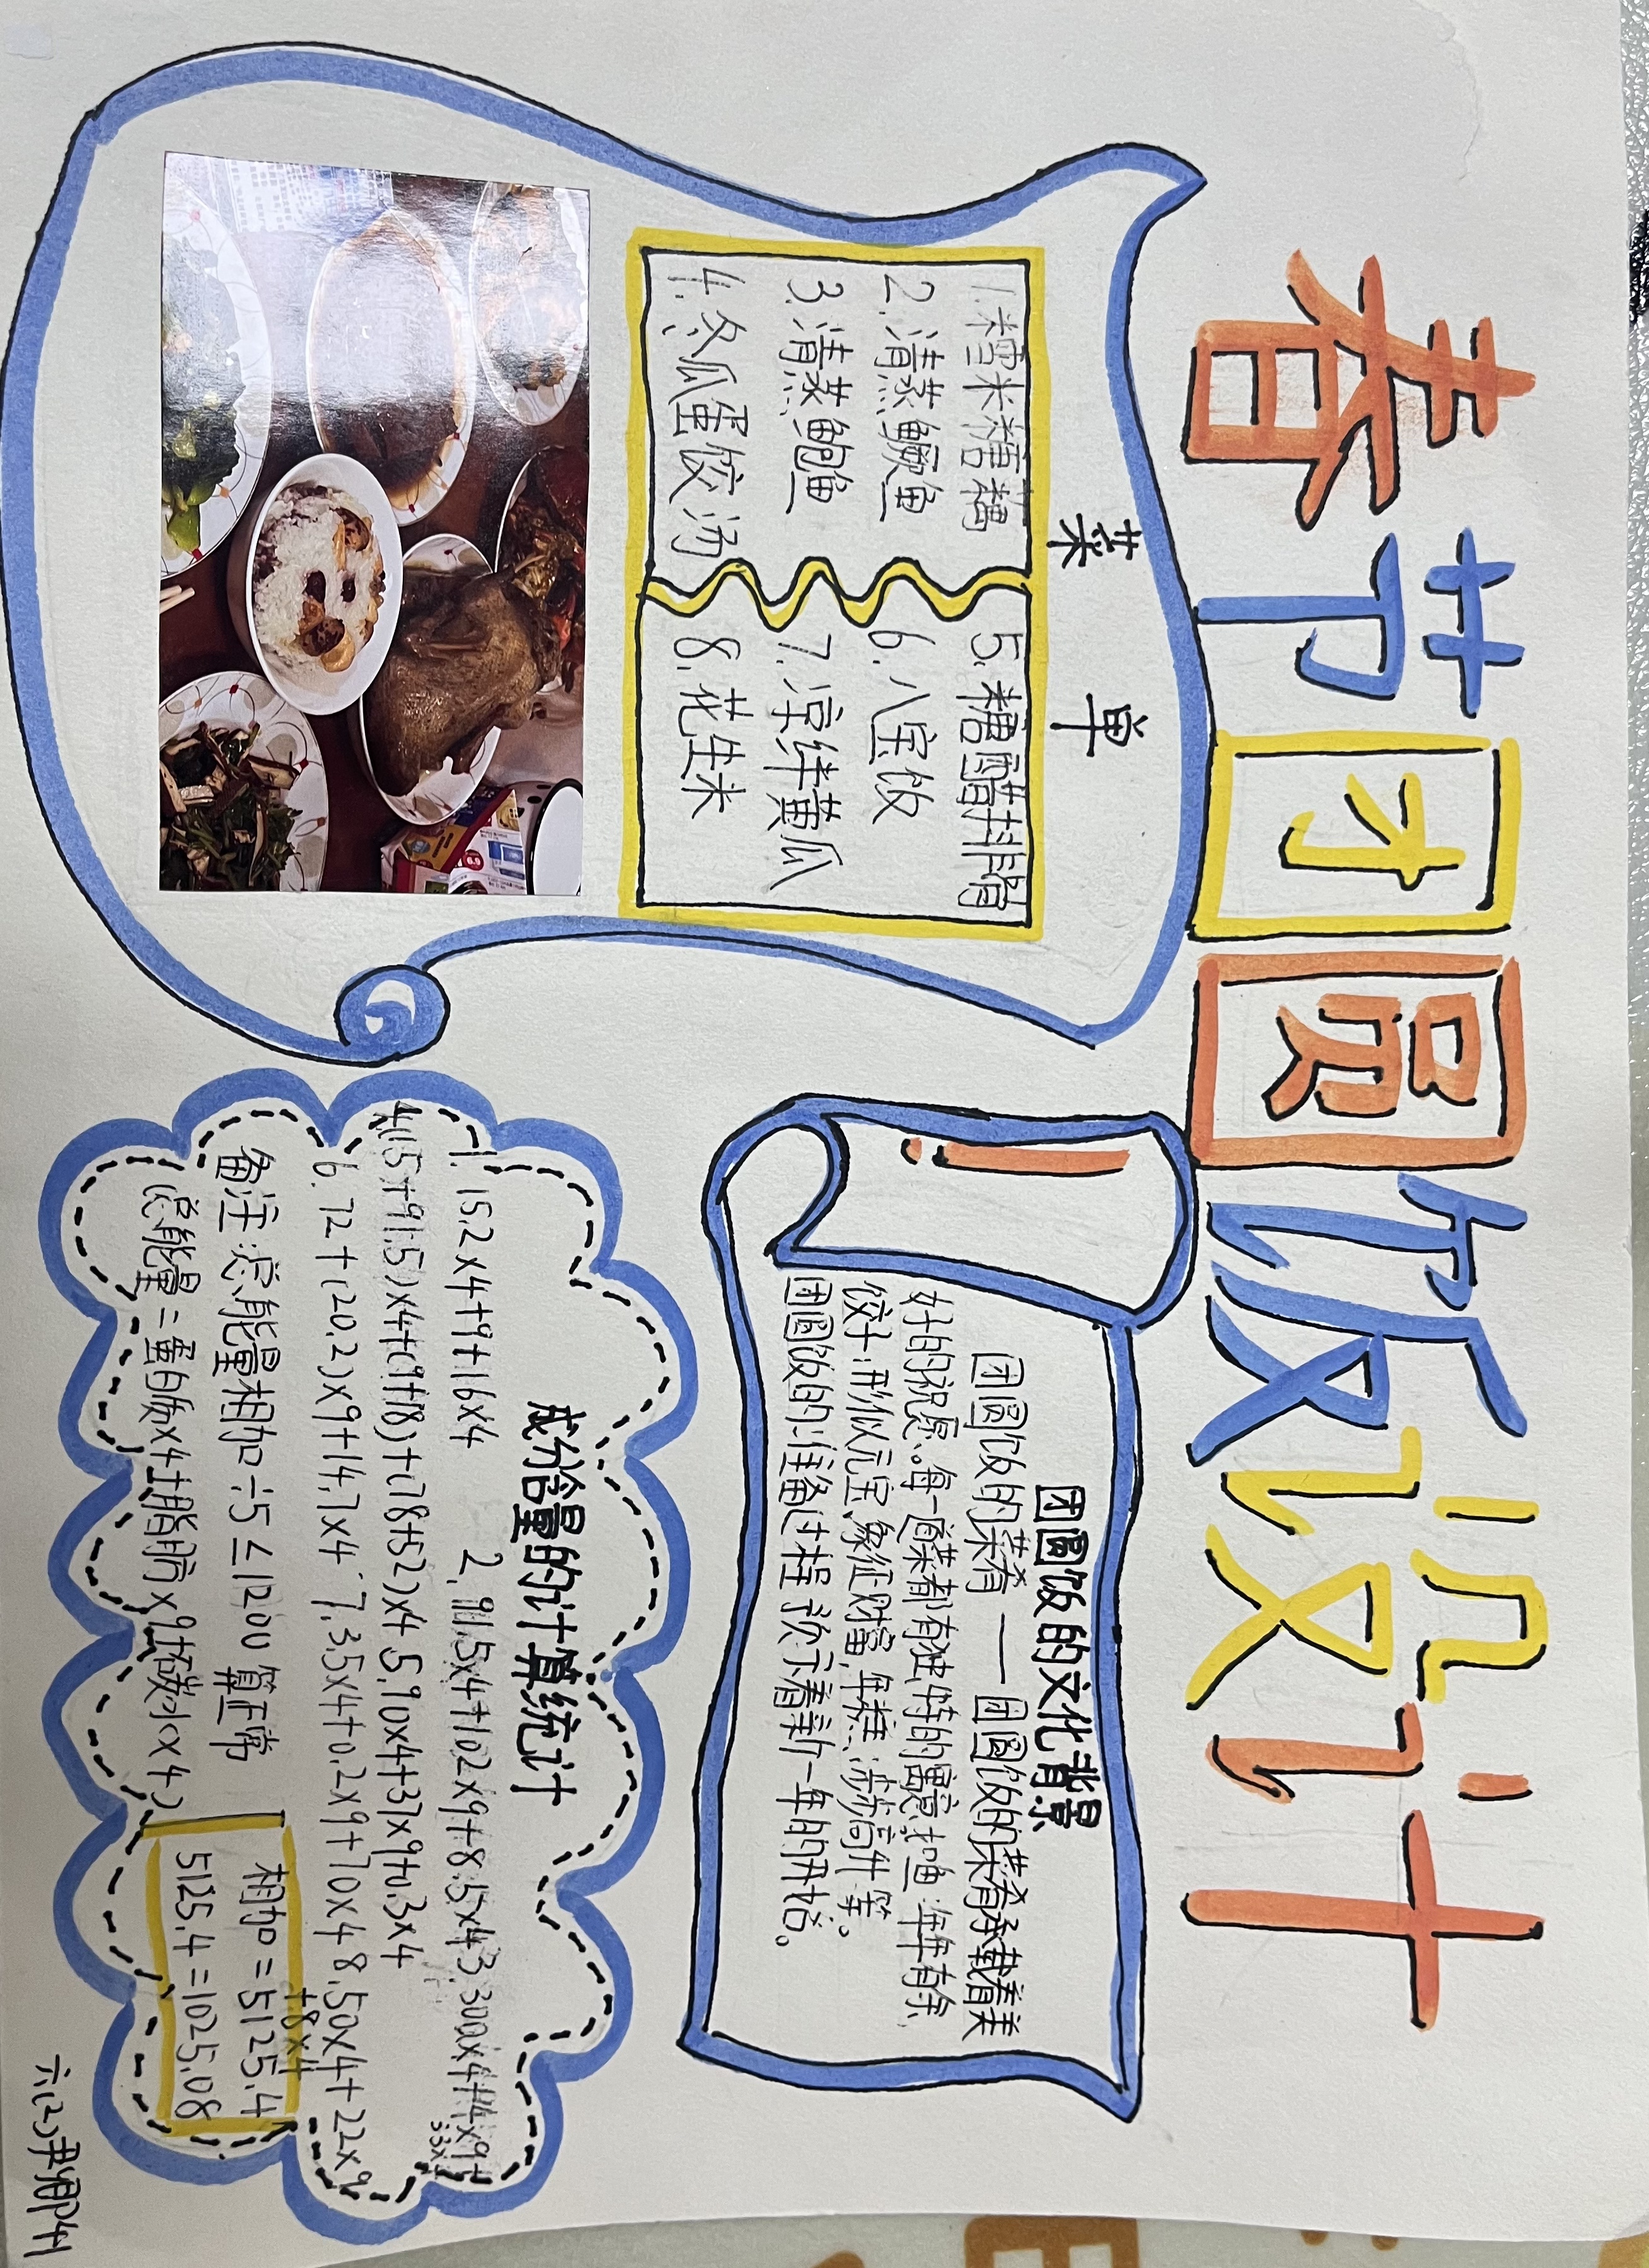 春节团圆饭设计
菜单
1.糯米糖藕
2.清蒸鳜鱼
3.清蒸鲍鱼
4.冬瓜蛋饺汤
5.糖醋排骨
6.八宝饭
7.凉拌黄瓜
8.花生米
!
团圆饭的文化背景
团圆饭的菜肴——团圆饭的菜肴承载着美
好的祝愿。每一道菜都有独特的寓意,如鱼:年年有余,
饺子:形似元宝,象征财富,年糕:步步高升等。
团圆饭的准备过程预示着新一年的开始。
成分含量的计算统计
1. 15.2×4+9+16×4 2. 91.5×4+102×9+8.5×4 3. 300×4+4×9+
33×4
4.(15+91.5)×4+(9+18)+(78+52)×4 5.90×4+37×9+0.3×4
6. 72+(20.2)×9+14.7×4 7. 3.5×4+0.2×9+70×4 8. 50×4+22×9
+8×4
备注:总能量相加÷5≤1200 算正常
(总能量=蛋白质×4+脂肪×9+碳水×4)
相加=5125.4
5125.4=1025.08
六(2)尹